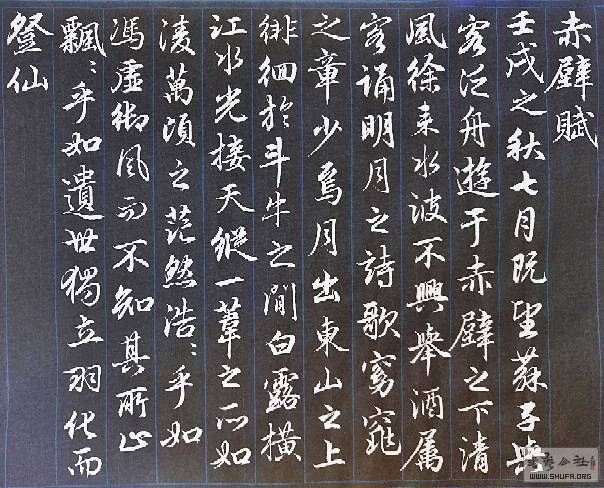 赤壁賦
壬戌之秋七月既望蘇子與
客泛舟遊于赤壁之下清
風徐来水波不興舉酒属
客誦明月之詩歌窈窕
之章少焉月出東山之上
徘徊於斗牛之間白露橫
江水光接天縱一葦之所如
淩萬頃之茫然浩〻乎如
馮虛御風而不知其所止
飄〻乎如遺世獨立羽化而
登仙
公社
WWW.SHUFA.ORG